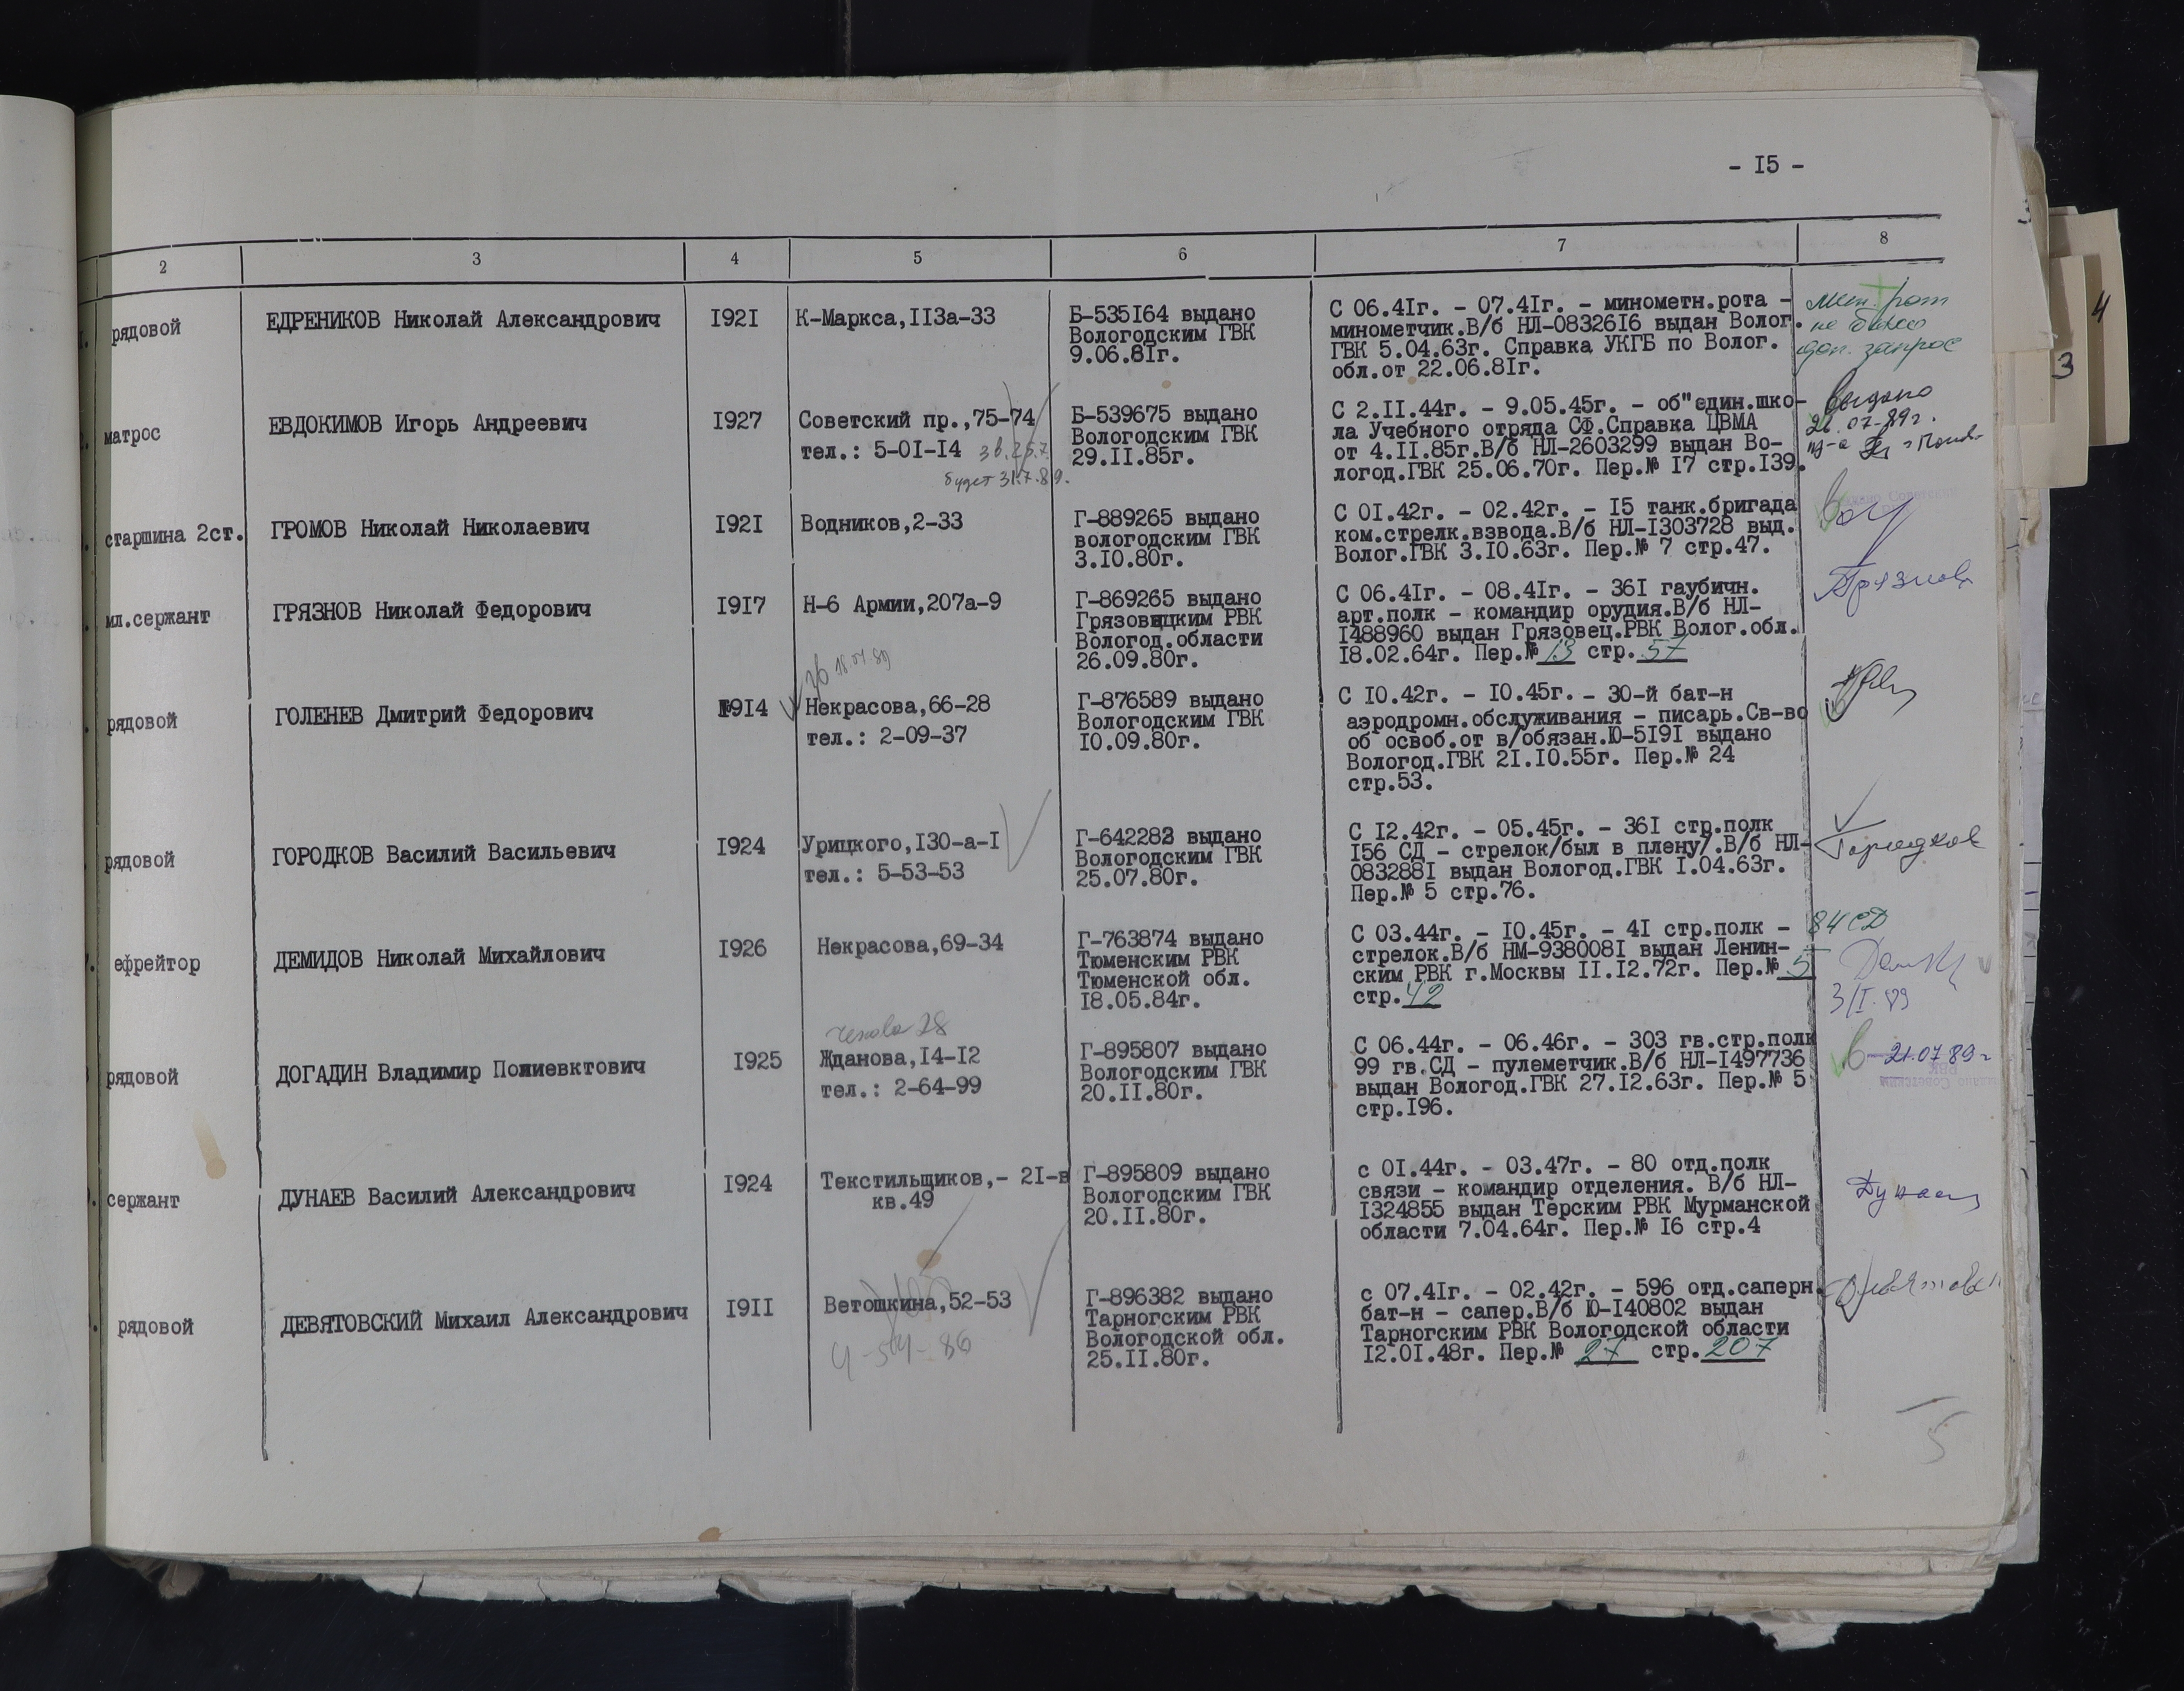 - I5 -
2 3 4 5 6 7 8
рядовой
ЕДРЕНИКОВ Николай Александрович
I92I
К-Маркса,II3а-33
Б-535I64 выдано
Вологодским ГВК
9.06.8Iг.
С 06.4Iг. - 07.4Iг. - минометн.рота -
минометчик.В/б НЛ-08326I6 выдан Волог.
ГВК 5.04.63г. Справка УКГБ по Волог.
обл.от 22.06.8Iг.
мин. рот
не было
доп. запрос
матрос
ЕВДОКИМОВ Игорь Андреевич
I927
Советский пр.,75-74
тел.: 5-0I-I4 зв. 25.7.
будет 31.7.89.
Б-539675 выдано
Вологодским ГВК
29.II.85г.
С 2.II.44г. - 9.05.45г. - об"един.шко-
ла Учебного отряда СФ.Справка ЦВМА
от 4.II.85г.В/б НЛ-2603299 выдан Во-
логод.ГВК 25.06.70г. Пер.№ I7 стр.I39.
выдано
26.07-89г.
старшина 2ст.
ГРОМОВ Николай Николаевич
I92I
Водников,2-33
Г-889265 выдано
вологодским ГВК
3.I0.80г.
С 0I.42г. - 02.42г. - I5 танк.бригада
ком.стрелк.взвода.В/б НЛ-I303728 выд.
Волог.ГВК 3.I0.63г. Пер.№ 7 стр.47.
мл.сержант
ГРЯЗНОВ Николай Федорович
I9I7
Н-6 Армии,207а-9
Г-869265 выдано
Грязовецким РВК
Вологод.области
26.09.80г.
С 06.4Iг. - 08.4Iг. - 36I гаубичн.
арт.полк - командир орудия.В/б НЛ-
I488960 выдан Грязовец.РВК Волог.обл.
I8.02.64г. Пер.№ 13 стр. 57
Грязнов
зв 18.07.89
рядовой
ГОЛЕНЕВ Дмитрий Федорович
I9I4
Некрасова,66-28
тел.: 2-09-37
Г-876589 выдано
Вологодским ГВК
I0.09.80г.
С I0.42г. - I0.45г. - 30-й бат-н
аэродромн.обслуживания - писарь.Св-во
об освоб.от в/обязан.Ю-5I9I выдано
Вологод.ГВК 2I.I0.55г. Пер.№ 24
стр.53.
рядовой
ГОРОДКОВ Василий Васильевич
I924
Урицкого,I30-а-I
тел.: 5-53-53
Г-642283 выдано
Вологодским ГВК
25.07.80г.
С I2.42г. - 05.45г. - 36I стр.полк
I56 СД - стрелок/был в плену/.В/б НЛ-
083288I выдан Вологод.ГВК I.04.63г.
Пер.№ 5 стр.76.
Городков
ефрейтор
ДЕМИДОВ Николай Михайлович
I926
Некрасова,69-34
Г-763874 выдано
Тюменским РВК
Тюменской обл.
I8.05.84г.
С 03.44г. - I0.45г. - 4I стр.полк -
стрелок.В/б НМ-938008I выдан Ленин-
ским РВК г.Москвы II.I2.72г. Пер.№ 5
стр. 42
84 СД
3/I. 89
рядовой
ДОГАДИН Владимир Полиевктович
I925
Чехова 28
Жданова,I4-I2
тел.: 2-64-99
Г-895807 выдано
Вологодским ГВК
20.II.80г.
С 06.44г. - 06.46г. - 303 гв.стр.полк
99 гв.СД - пулеметчик.В/б НЛ-I497736
выдан Вологод.ГВК 27.I2.63г. Пер.№ 5
стр.I96.
21.07.89г
сержант
ДУНАЕВ Василий Александрович
I924
Текстильщиков,- 2I-в
кв.49
Г-895809 выдано
Вологодским ГВК
20.II.80г.
с 0I.44г. - 03.47г. - 80 отд.полк
связи - командир отделения. В/б НЛ-
I324855 выдан Терским РВК Мурманской
области 7.04.64г. Пер.№ I6 стр.4
Дунаев
рядовой
ДЕВЯТОВСКИЙ Михаил Александрович
I9II
Ветошкина,52-53
4-54-86
Г-896382 выдано
Тарногским РВК
Вологодской обл.
25.II.80г.
с 07.4Iг. - 02.42г. - 596 отд.саперн.
бат-н - сапер.В/б Ю-I40802 выдан
Тарногским РВК Вологодской области
I2.0I.48г. Пер.№ 27 стр. 207
5
4
3